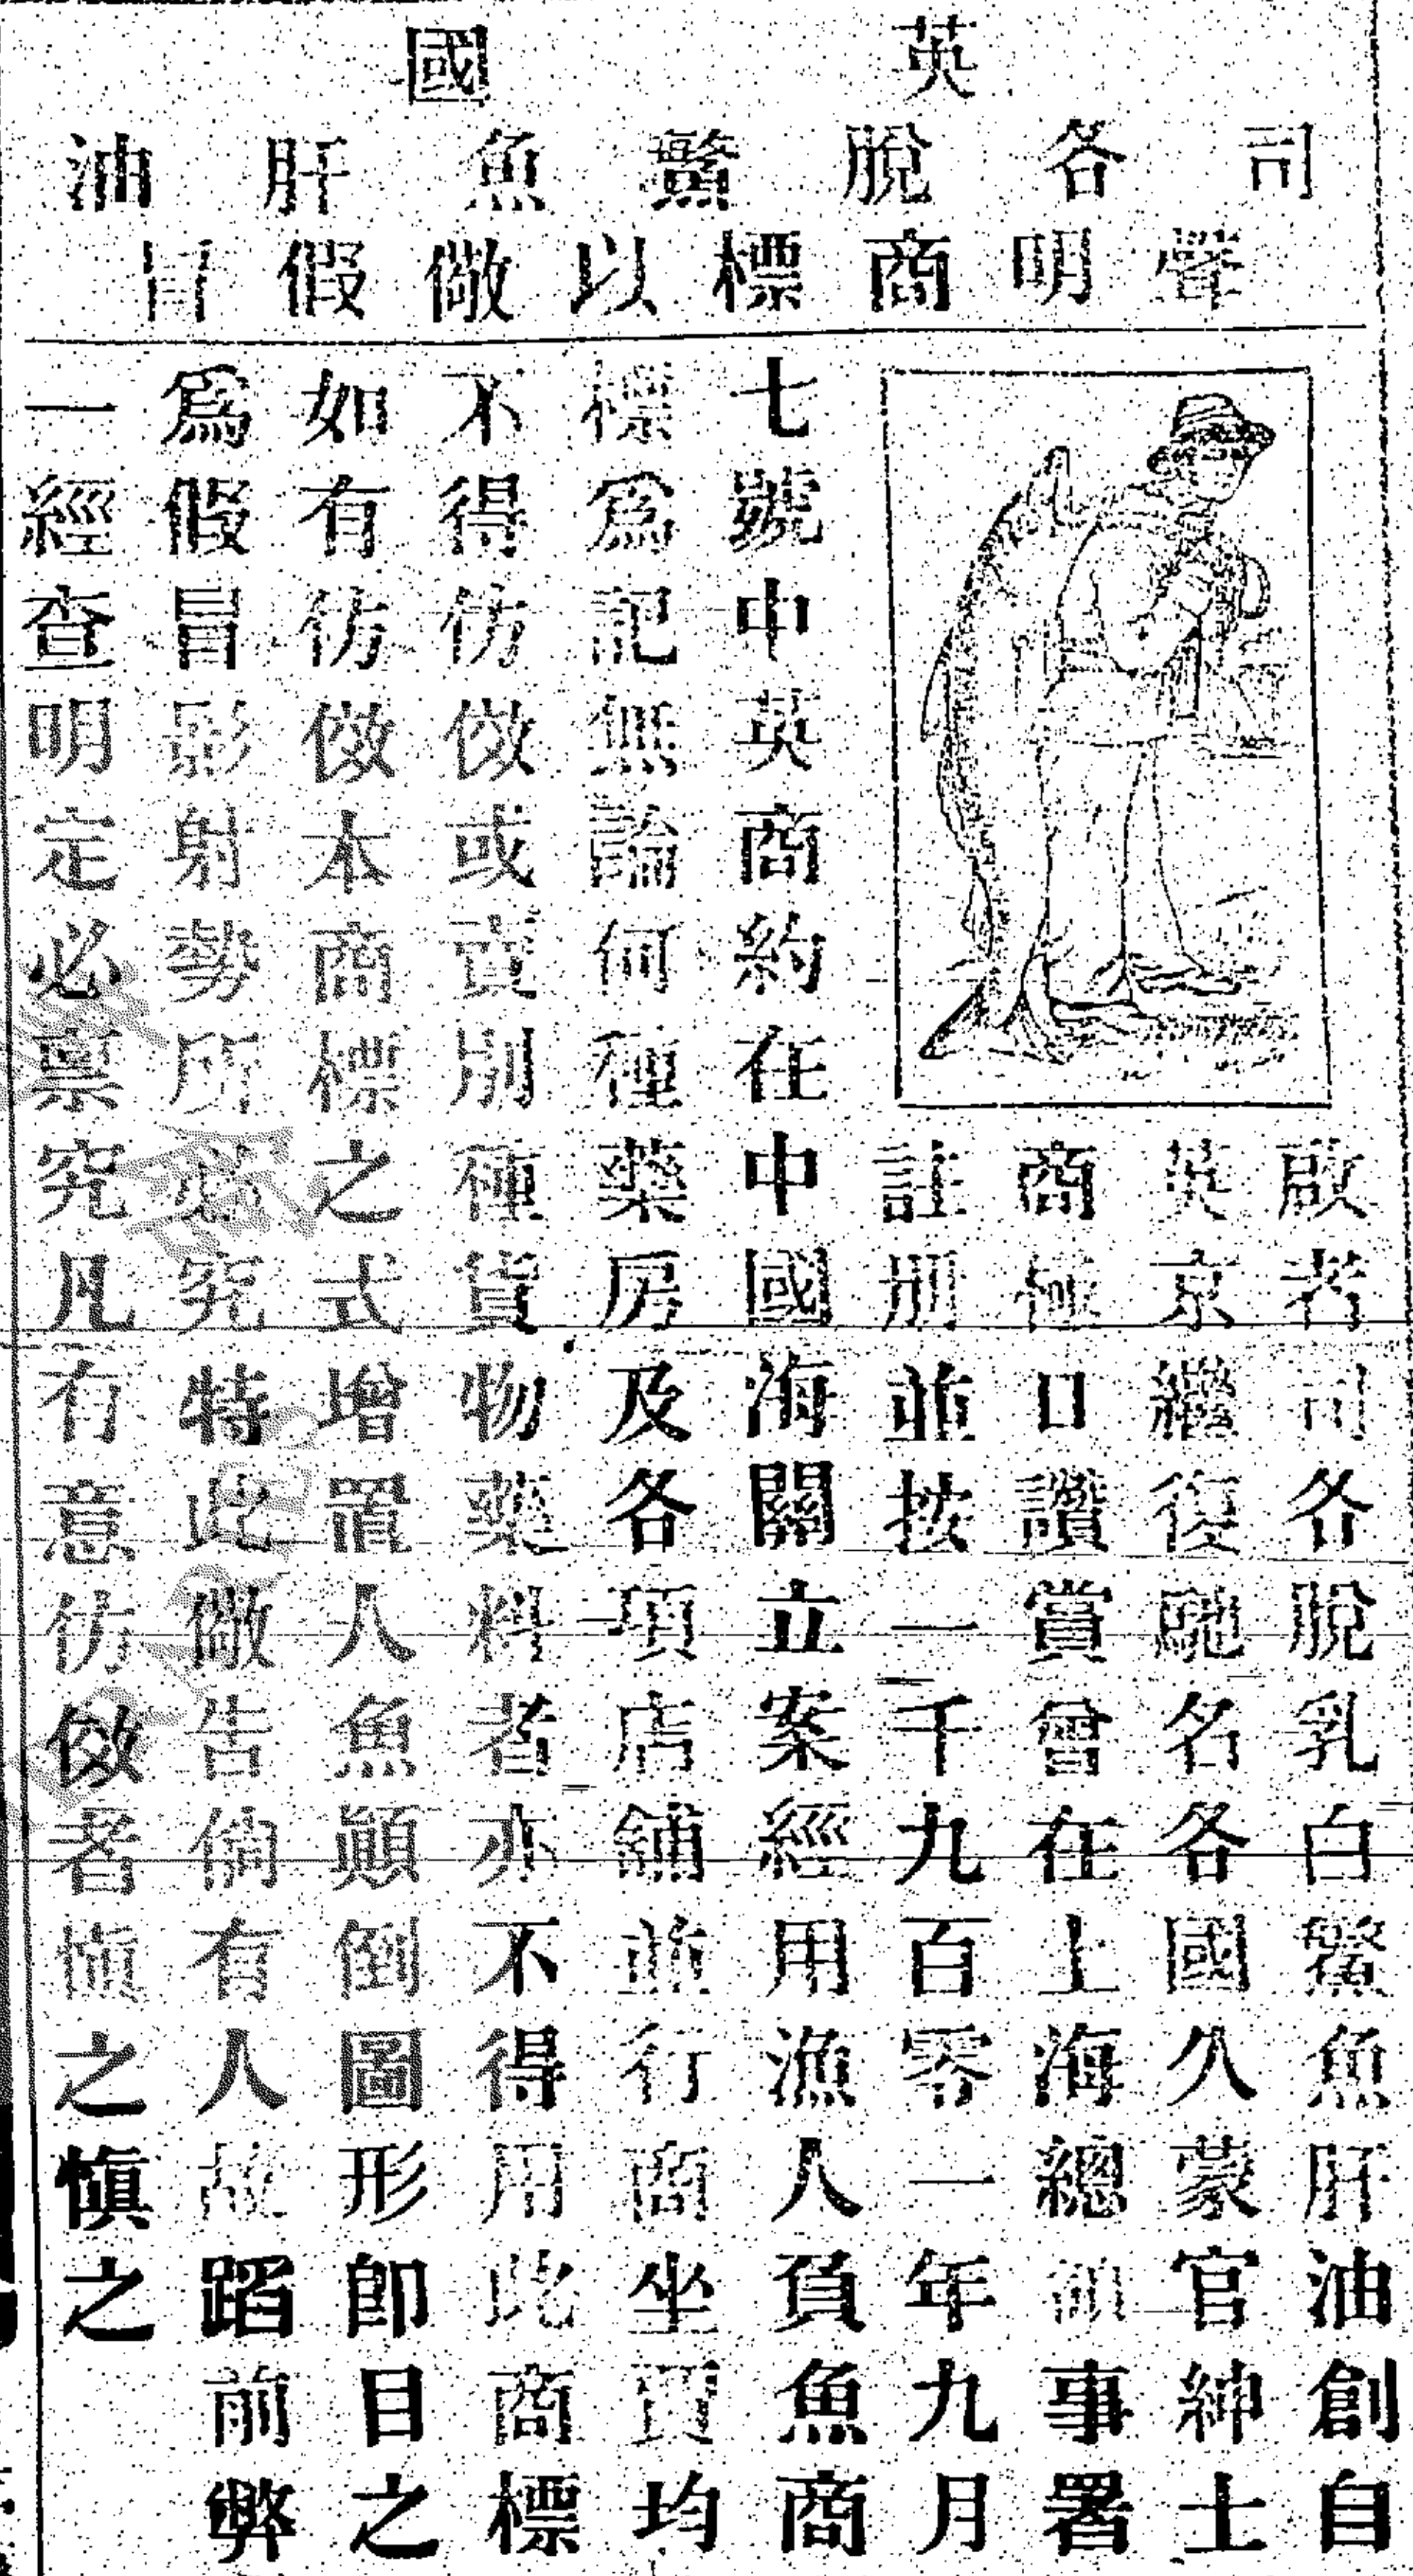 英國
司各脫鱉魚肝油
聲明商標以儆假冒
啟者司各脫乳白鱉魚肝油創自
英京繼復馳名各國久蒙官紳士
商極口讚賞曾在上海總領事署
註册並按一千九百零一年九月
七號中英商約在中國海關立案經用漁人負魚商
標爲記無論何種藥房及各項店舖並行商坐賈均
不得仿傚或賣別種貨物藥料者亦不得用此商標
如有仿傚本商標之式增置人魚顛倒圖形卽目之
爲假冒影射勢所必究特此儆告倘有人故蹈前弊
一經查明定必禀究凡有意仿傚者愼之愼之